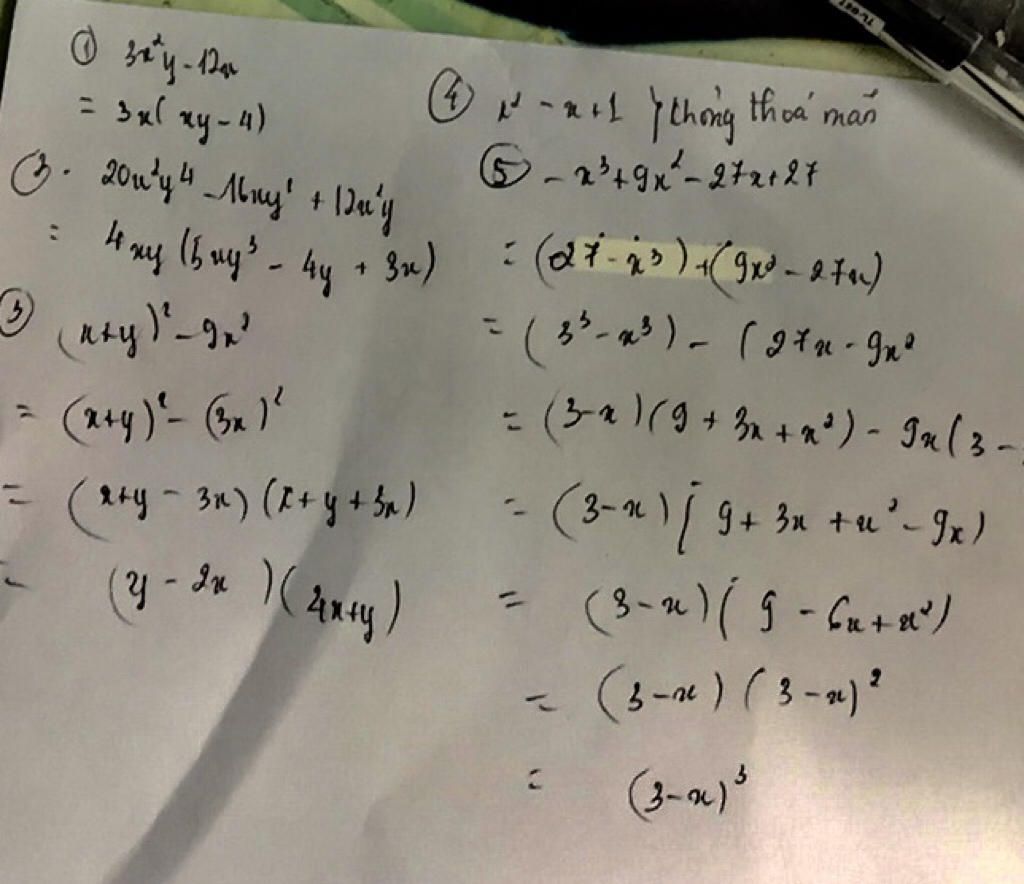 ① 3x²y - 12x
= 3x(xy - 4)
② 20x²y⁴ - 16xy² + 12x²y
= 4xy(5xy³ - 4y + 3x)
③ (x+y)² - 9x²
= (x+y)² - (3x)²
= (x+y - 3x)(x+y+3x)
= (y - 2x)(4x+y)
④ x² - x + 1 } không thoả mãn
⑤ - x³ + 9x² - 27x + 27
= (27 - x³) + (9x² - 27x)
= (3³ - x³) - (27x - 9x²
= (3-x)(9 + 3x + x²) - 9x(3 -
= (3-x)(9 + 3x + x² - 9x)
= (3-x)(9 - 6x + x²)
= (3-x)(3-x)²
= (3-x)³